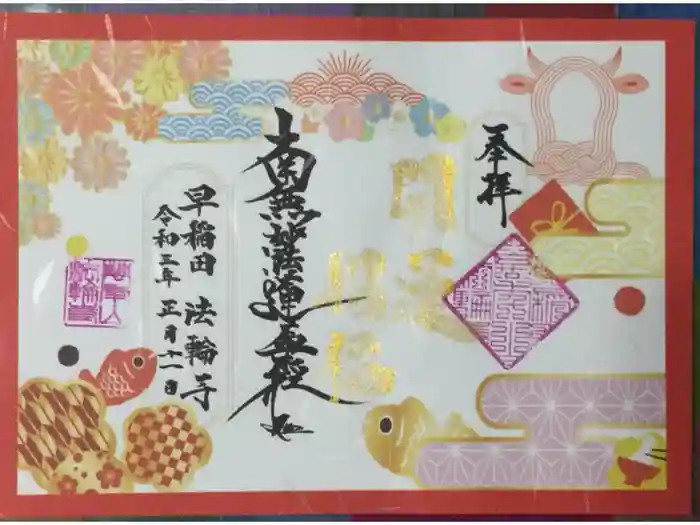 奉拝
開運
南無妙法蓮華経
早稲田 法輪寺
令和三年 正月十一日